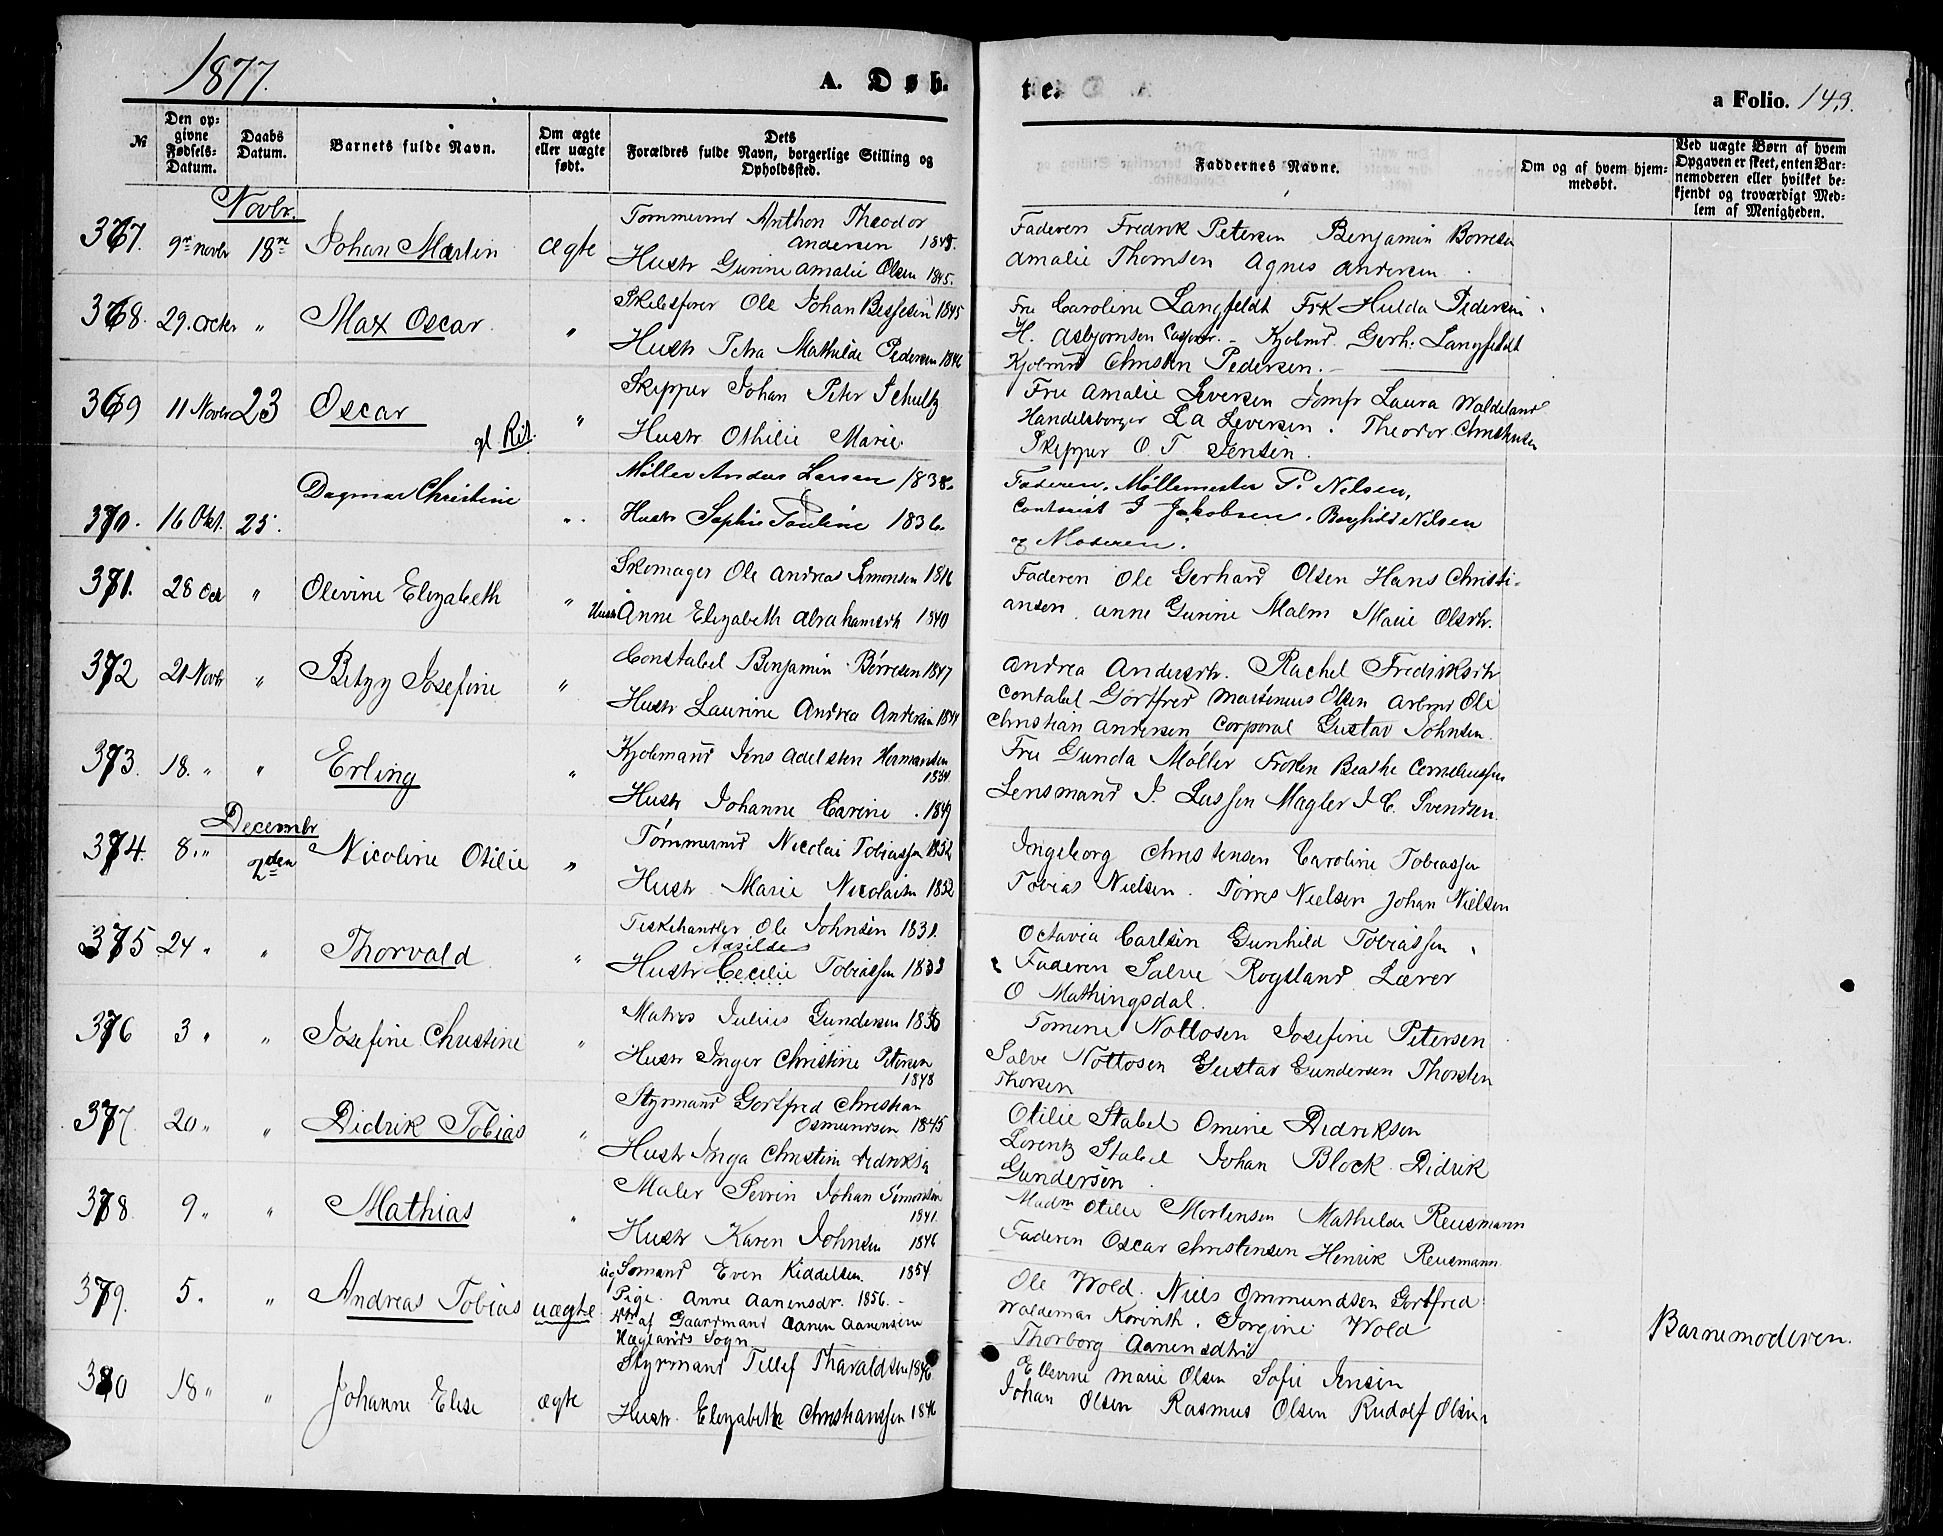 1877.
A. Døb-
te.
a Folio. 149.
№
Den opgivne Fødsels-Datum.
Daabs Datum.
Barnets fulde Navn.
Om ægte eller uægte født.
Dets Forældres fulde Navn, borgerlige Stilling og Opholdssted.
Faddernes Navne.
Om og af hvem hjemmedøbt.
Ved uægte Børn af hvem Opgaven er skeet, enten Barnemoderen eller hvilket bekjendt og troværdigt Medlem af Menigheden.
Novbr.
367. 9de novbr 18de Johan Martin Ægte
Tømmermd Anthon Theodor
Andersen 1845.
Hustr Gurine Amalie Olsen 1845.
Faderen Fredrik Petersen Benjamin Borresen
Amalie Thomsen Agnes Andersen
368. 29. Octbr " Max Oscar "
Skibsfører Ole Johan Bessesen 1845
Hustr Petra Mathilde Pedersen 1846
Fru Caroline Langfeldt Frk Hulda Pedersen
H. Asbjørnsen Kjøbmd Gerh. Langfeldt
Kjøbmd Christen Pedersen.
369 11 Novbr 23 Oscar "
gl Rit.
Skipper Johan Peter Schultz
Hustr Othilie Marie
Fru Amalie Seversen Jomfr Laura Waldeland
Handelsborger L A Seversen. Theodor Christensen
Skipper O. T Jensen.
370. 16 Okt. 25. Dagmar Christine "
Møller Anders Larsen 1838.
Hustr Sophie Pauline 1836.
Faderen, Møllemester P. Nelsen,
Contorist J Jakobsen. Borghild Nelsen
og Moderen.
371. 28 Oct " Olevine Elezabeth "
Skomager Ole Andreas Simonsen 1816
Hustr Anne Elezabeth Abrahamsdtr 1840
Faderen Ole Gerhard Olsen Hans Christi-
ansen. Anne Gurine Malm Marie Olsdtr.
372 21 Novbr " Betzy Josefine "
Constabel Benjamin Børresen 1847
Hustr Laurine Andrea Andersen 1844
Andrea Andersdtr. Rachel Fredriksdtr
Contabel Gortfred Marsenius Olsen Arbmd Ole
Christian Andersen Corporal Gustav Johnsen.
373. 18. " " Erling "
Kjøbmand Jens Adelsten Hermansen
1834.
Hustr Johanne Carine. 1849
Fru Gunda Møller Frøken Beathe Corneliussen
Lensmand J. Lassen Mægler J. C. Svendsen.
Decembr
374. 8. " 2den Nicoline Otilie "
Tømmermd Nicolai Tobiassen 1852
Hustr Marie Nicolaisen 1852
Ingeborg Christensen Caroline Tobiassen
Tobias Nielsen. Tørres Nielsen Johan Nielsen
375 24 " " Thorvald "
Fiskehandler Ole Johnsen 1831.
Aasilde
Hustr Cecilie Tobiassen 1833
Octavia Carlsen Gunhild Tobiassen
Faderen Salve Rogsland Lærer
O Mathingsdal.
376 3 " " Josefine Christine "
Matros Julius Gundersen 1846
Hustr Inger Christine Petersen
1848
Tomine Nottosen Josefine Petersen
Salve Nottosen Gustav Gundersen Thorsten
Thorsen
377. 20 " " Didrik Tobias "
Styrmand Gortfred Christian
Osmundsen 1845
Hustr Inga Christine Didriksen
Otilie Stabel Omine Didriksen
Lorentz Stabel Johan Block. Didrik
Gundersen
378. 9 " " Mathias "
Maler Sevrin Johan Simonsen
1841.
Hustr Karen Johnsen 1846
Madm Otilie Mortensen Mathilde Reusmann
Faderen Oscar Christensen Henrik Reusmann
379. 5. " Andreas Tobias uægte
ug Sømand Even Kiddelsen. 1854
Pige. Anne Aanensdr. 1856.
Dtr af Gaardmand Aanen Aanensen
Hæglands Sogn
Ole Wold. Niels Ommundsen Gortfred
Waldemar Korinth. Sorgine Wold
Thorborg Aanensdtr
Barnemoderen.
380 18 " " Johanne Elise ægte
Styrmand Tellef Tharaldsen 1846
Hustr. Elezabeth Christianssen 1846
Ellevine Marie Olsen Sofie Jensen
Johan Olsen Rasmus Olsen Rudolf Olsen